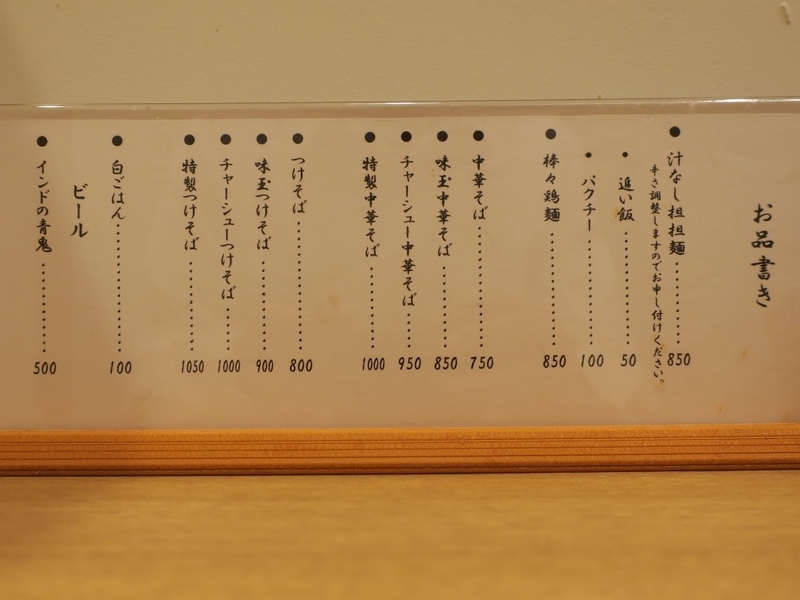 お品書き
●汁なし担担麺……………850
辛さ調整しますのでお申し付けください。
・追い飯……………50
・パクチー……………100
●棒々鶏麺……………850
●中華そば……………750
●味玉中華そば……………850
●チャーシュー中華そば……………950
●特製中華そば……………1000
●つけそば……………800
●味玉つけそば……………900
●チャーシューつけそば……………1000
●特製つけそば……………1050
●白ごはん……………100
ビール
●インドの青鬼……………500